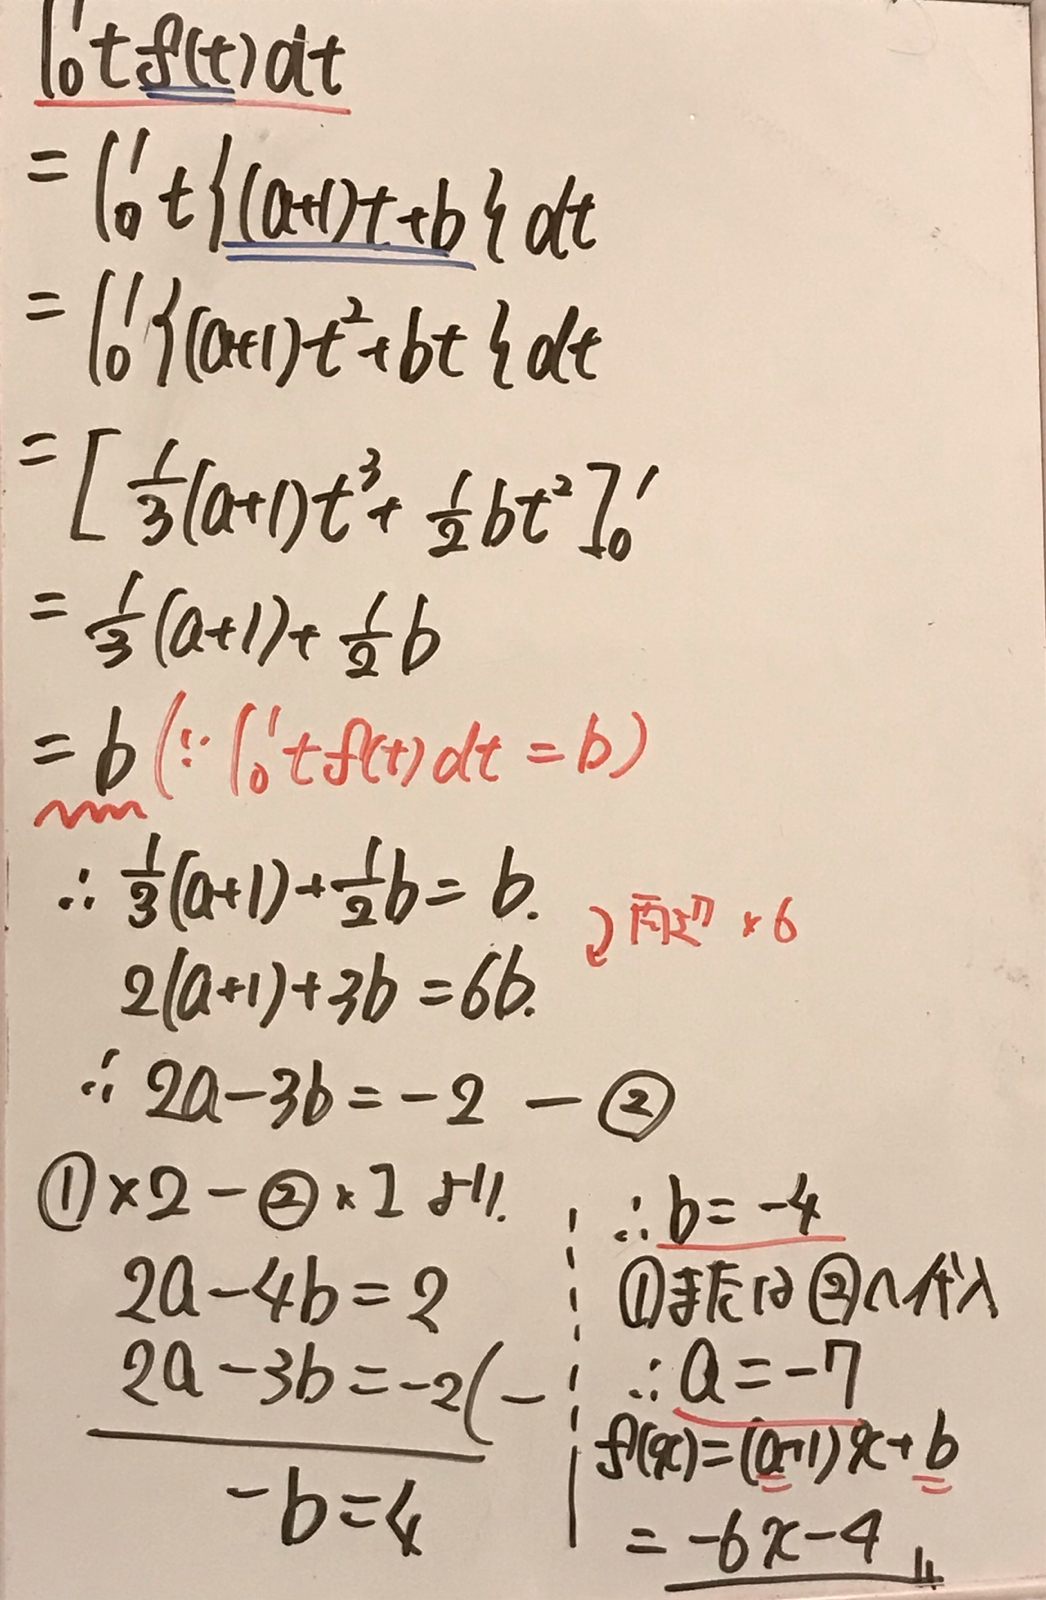 ∫₀¹ t f(t) dt
= ∫₀¹ t {(a+1)t+b} dt
= ∫₀¹ {(a+1)t²+bt} dt
= [ 1/3 (a+1)t³ + 1/2 bt² ]₀¹
= 1/3 (a+1) + 1/2 b
= b (∵ ∫₀¹ t f(t) dt = b)
∴ 1/3 (a+1) + 1/2 b = b.
両辺 × 6
2(a+1)+3b = 6b.
∴ 2a-3b = -2 - ②
①×2 - ②×1 より.
2a-4b = 2
2a-3b = -2 (-
-b = 4
∴ b = -4
①または②へ代入
∴ a = -7
f(x) = (a+1)x + b
= -6x-4 〃